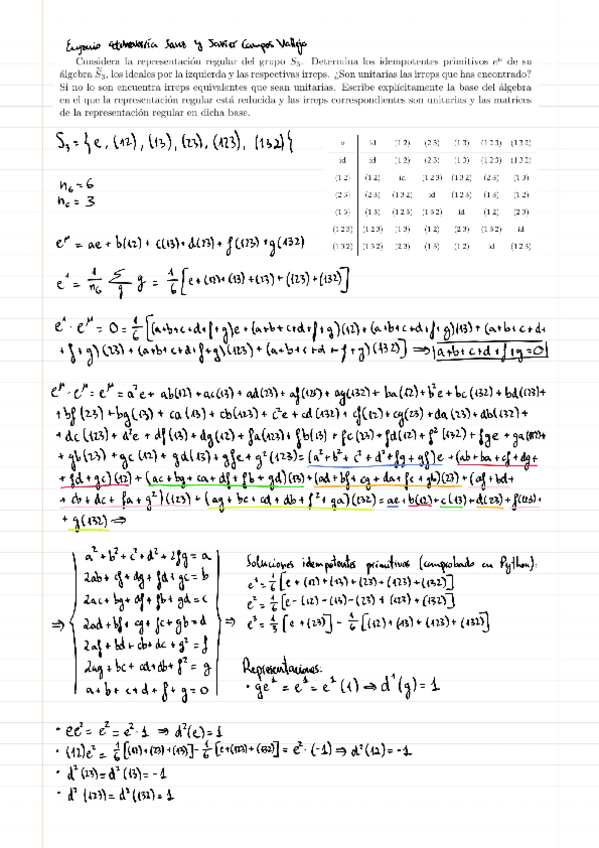 Eugenio Etchebarría Sanz y Javier Campos Vallejo
Considera la representación regular del grupo S₃. Determina los idempotentes primitivos e^μ de su
álgebra S̃₃, los ideales por la izquierda y las respectivas irreps. ¿Son unitarias las irreps que has encontrado?
Si no lo son encuentra irreps equivalentes que sean unitarias. Escribe explícitamente la base del álgebra
en el que la representación regular está reducida y las irreps correspondientes son unitarias y las matrices
de la representación regular en dicha base.
S₃ = {e, (12), (13), (23), (123), (132)}
∘ id (1 2) (2 3) (1 3) (1 2 3) (1 3 2)
id id (1 2) (2 3) (1 3) (1 2 3) (1 3 2)
(1 2) (1 2) id (1 2 3) (1 3 2) (2 3) (1 3)
(2 3) (2 3) (1 3 2) id (1 2 3) (1 3) (1 2)
(1 3) (1 3) (1 2 3) (1 3 2) id (1 2) (2 3)
(1 2 3) (1 2 3) (1 3) (1 2) (2 3) (1 3 2) id
(1 3 2) (1 3 2) (2 3) (1 3) (1 2) id (1 2 3)
n_G = 6
n_c = 3
e^μ = ae + b(12) + c(13) + d(23) + f(123) + g(132)
e¹ = 1/n_G Σ_g g = 1/6 [e + (12) + (13) + (23) + (123) + (132)]
e¹ · e^μ = 0 = 1/6 [(a+b+c+d+f+g)e + (a+b+c+d+f+g)(12) + (a+b+c+d+f+g)(13) + (a+b+c+d+
+f+g)(23) + (a+b+c+d+f+g)(123) + (a+b+c+d+f+g)(132)] ⇒ a+b+c+d+f+g=0
e^μ · e^μ = e^μ = a²e + ab(12) + ac(13) + ad(23) + af(123) + ag(132) + ba(12) + b²e + bc(132) + bd(123) +
+ bf(23) + bg(13) + ca(13) + cb(123) + c²e + cd(132) + cf(12) + cg(23) + da(23) + db(132) +
+ dc(123) + d²e + df(13) + dg(12) + fa(123) + fb(13) + fc(23) + fd(12) + f²(132) + fge + ga(132) +
+ gb(23) + gc(12) + gd(13) + gfe + g²(123) = (a²+b²+c²+d²+fg+gf)e + (ab+ba+cf+dg+
+ fd+gc)(12) + (ac+bg+ca+df+fb+gd)(13) + (ad+bf+cg+da+fc+gb)(23) + (af+bd+
+ cb+dc+fa+g²)(123) + (ag+bc+cd+db+f²+ga)(132) = ae + b(12) + c(13) + d(23) + f(123) +
+ g(132) ⇒
⇒ { a²+b²+c²+d²+2fg = a
2ab+cf+dg+fd+gc = b
2ac+bg+df+fb+gd = c
2ad+bf+cg+fc+gb = d
2af+bd+cb+dc+g² = f
2ag+bc+cd+db+f² = g
a+b+c+d+f+g = 0
⇒ Soluciones idempotentes primitivos (comprobado en Python):
e¹ = 1/6 [e + (12) + (13) + (23) + (123) + (132)]
e² = 1/6 [e - (12) - (13) - (23) + (123) + (132)]
e³ = 1/3 [e + (23)] - 1/6 [(12) + (13) + (123) + (132)]
Representaciones:
· ge¹ = e¹ = e¹(1) ⇒ d¹(g) = 1
· ee² = e² = e² · 1 ⇒ d²(e) = 1
· (12)e² = 1/6 [(12) + (23) + (13)] - 1/6 [e + (123) + (132)] = e² · (-1) ⇒ d²(12) = -1
· d²(23) = d²(13) = -1
· d²(123) = d²(132) = 1